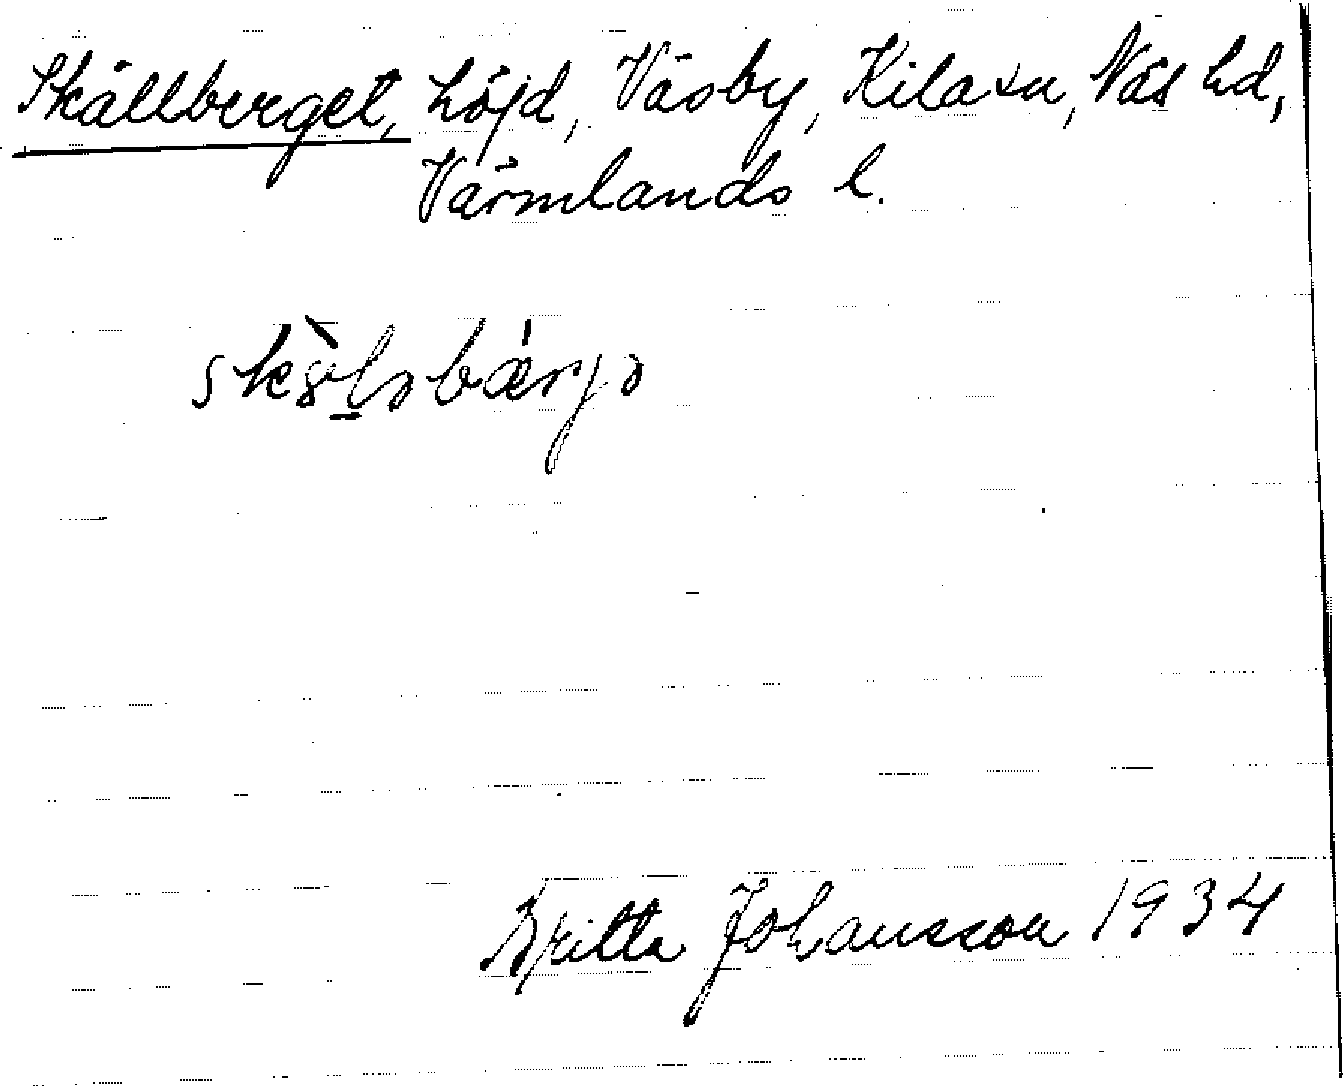 Skållberget, höjd, Väsby, Kila sn, Näs hd,
Värmlands l.
Britta Johansson 1934